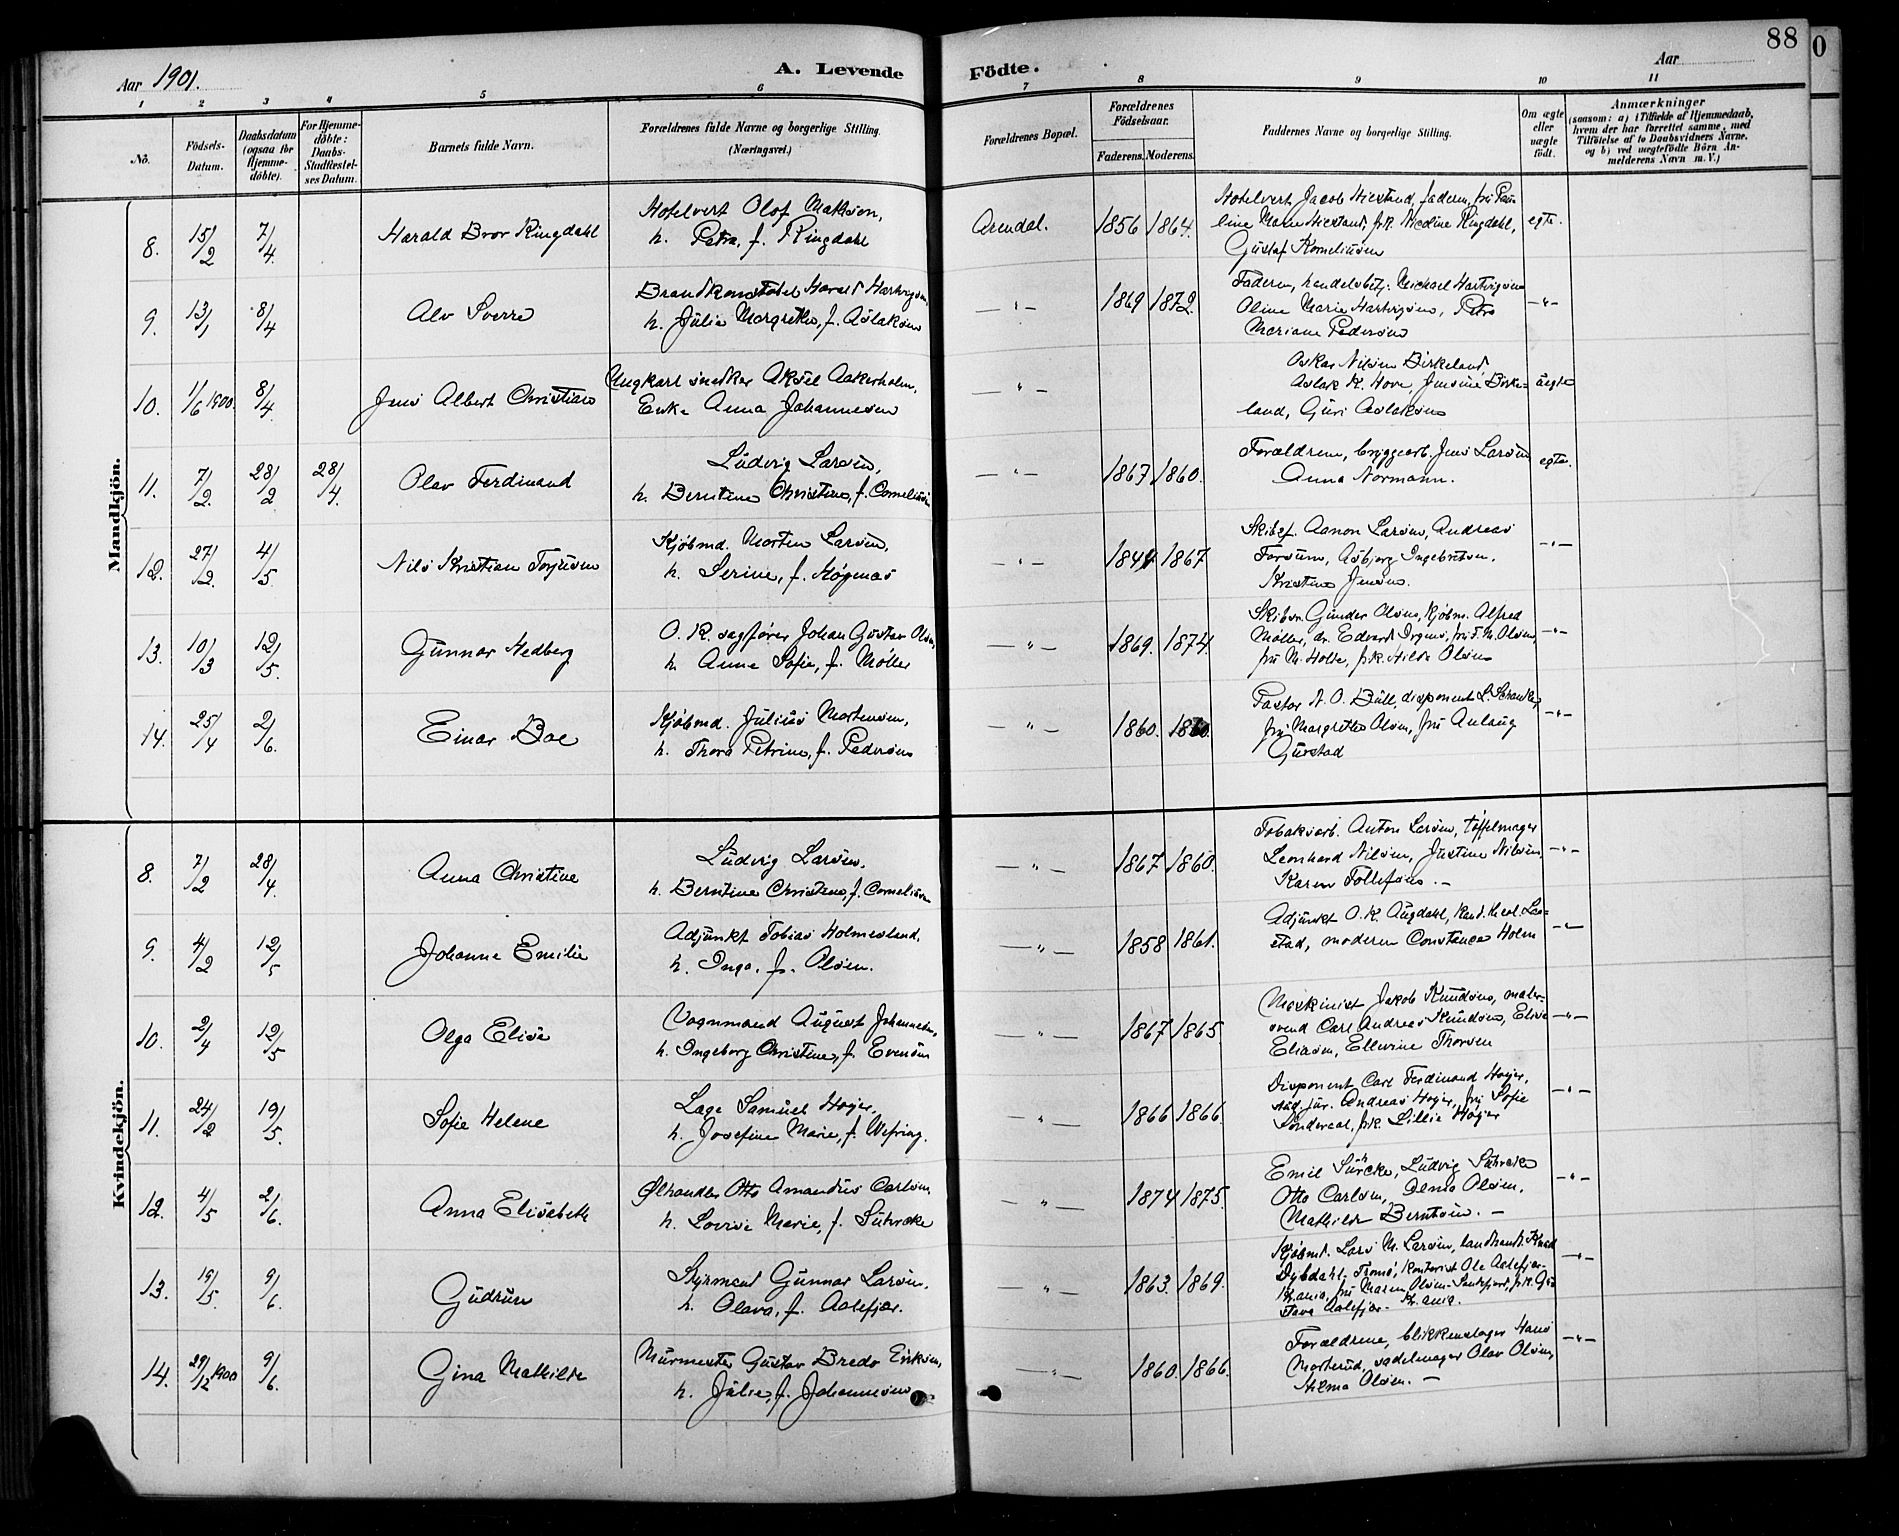 Aar 1901.
A. Levende
Födte.
Aar
88
1
2
3
4
5
6
7
8
9
10
11
No.
Födsels-Datum.
Daabsdatum (ogsaa for Hjemme-döbte).
For Hjemme-döbte: Daabs-Stadfæstel-ses Datum.
Barnets fulde Navn.
Forældrenes fulde Navne og borgerlige Stilling. (Næringsvei.)
Forældrenes Bopæl.
Forældrenes Födselsaar.
Faderens.
Moderens.
Faddernes Navne og borgerlige Stilling.
Om ægte eller uægte födt.
Anmærkninger
(saasom: a) i Tilfælde af Hjemmedaab, hvem der har forrettet samme, med Tilföielse af to Daabsvidners Navne, og b) ved uægtefödte Börn Anmelderens Navn m. V.)
Mandkjön.
8. 15/2 7/4 Harald Bror Ringdahl
Hotelvert Olof Matson,
h. Petra, f. Ringdahl
Arendal. 1856 1864.
Hotelvert Jacob Hiestand, faderen, fru Pau-
line Marie Hiestand, frk. Nicoline Ringdahl,
Gustaf Korneliusen
egte.
9. 13/1 8/4 Alv Sverre
Brandkonstabel Harald Hartvigsen,
h. Julie Margrethe, f. Aslaksen
— " — 1869 1872.
Faderen, handelsbetj. Michael Hartvigsen
Oline Marie Hartvigsen, Petra
Mariane Pedersen
— " —
10. 1/6 1900. 8/4 Jens Albert Christian
Ungkarl snedker Aksel Aakerholm,
Enke Anna Johannesen
— " —
Oskar Nilsen Birkeland,
Aslak K. Hove, Jensine Birke-
land, Guri Aslaksen
uegte
11. 7/2. 28/2 28/4. Olav Ferdinand
Ludvig Larsen,
h. Berntine Christine, f. Corneliusen
— " — 1867 1860.
Forældrene, bryggearb. Jens Larsen
Anna Normann.
egte.
12. 27/2. 4/5 Nils Kristian Torjusen
Kjøbmd. Morten Larsen,
h. Serine, f. Høgenæs
— " — 1867
Skibsf. Aanon Larsen, Andreas
Asbjørg Ingebretsen,
Kristine Jensen.
— " —
13. 10/3 12/5. Gunnar Hedberg
O. R. sagfører Johan Gustav Olsen,
h. Anne Sofie, f. Møller
— " — 1869. 1874.
Skibsr. Gunder Olsen, kjøbm. Alfred
Møller, dr. Edvard Irgens, fru T. M. Olsen,
fru M. Holte, frk. Hilda Olsen
— " —
14. 25/4 2/6. Einar Boe
Kjøbmd. Julius Mortensen,
h. Thora Petrine, f. Pedersen
— " — 1860.
Pastor N. O. Bull, disponent L. Schanke,
fru Margrethe Olsen, fru Anlaug
Gurstad
— " —
Kvindekjön.
8. 7/2 28/4. Anna Christine
Ludvig Larsen.
h. Berntine Christine, f. Corneliusen
— " — 1867 1860.
Tobaksarb. Anton Larsen, tøffelmager
Leonhard Nilsen, Justine Nilsen,
Karen Tollefsen. —
— " —
9. 4/2 12/5 Johanne Emilie
Adjunkt Tobias Holmesland,
h. Inga, f. Olsen.
— " — 1858 1861.
Adjunkt O. K. Augdahl, kand. theol. Las-
stad, moderen Constance Holm
— " —
10. 2/4 12/5 Olga Elise
Vognmand August Johannesen,
h. Ingeborg Christine, f. Evensen
— " — 1867 1865.
Maskinist Jakob Knudsen, maler-
svend Carl Andreas Knudsen, Elise
Eliasen, Ellevine Thorsen
— " —
11. 24/2 19/5. Sofie Helene
Lage Samuel Høyer,
h. Josefine Marie, f. Wefring.
" — 1866 1866.
Disponent Carl Ferdinand Høyer,
stud. jur. Andreas Høyer, fru Sofie
Sønderaal, frk. Lillie Høyer
— " —
12. 4/5 2/6. Anna Elisabeth
Ølhandler Otto Amandus Carlsen,
h. Lovise Marie, f. Suhrcke
— " — 1874 1875.
Emil Suhrcke, Ludvig Suhrcke
Otto Carlsen, Olsen,
Mathilde Berntsen. —
— " —
13. 19/5. 9/6. Gudrun
Styrmand Gunnar Larsen,
h. Olava, f. Aalefjær.
" — 1863. 1869.
Kjøbmd. Lars M. Larsen, landhandl. Knud
Dybdahl-Tromø, kontorist Ole Aalefjær-
Kr.ania, fru Maren Olsen-Sandefjord, frk. Gu-
stava Aalefjær- Kr.ania.
— " —
14. 29/12 1900 9/6. Gina Mathilde
Murmester Gustav Bredo Eriksen,
h. Julie, f. Johannesen
— " — 1860. 1866.
Forældrene, blikkenslager Hans
Morterud, sadelmager Olav Olsen,
Hilma Olsen. —
— " —